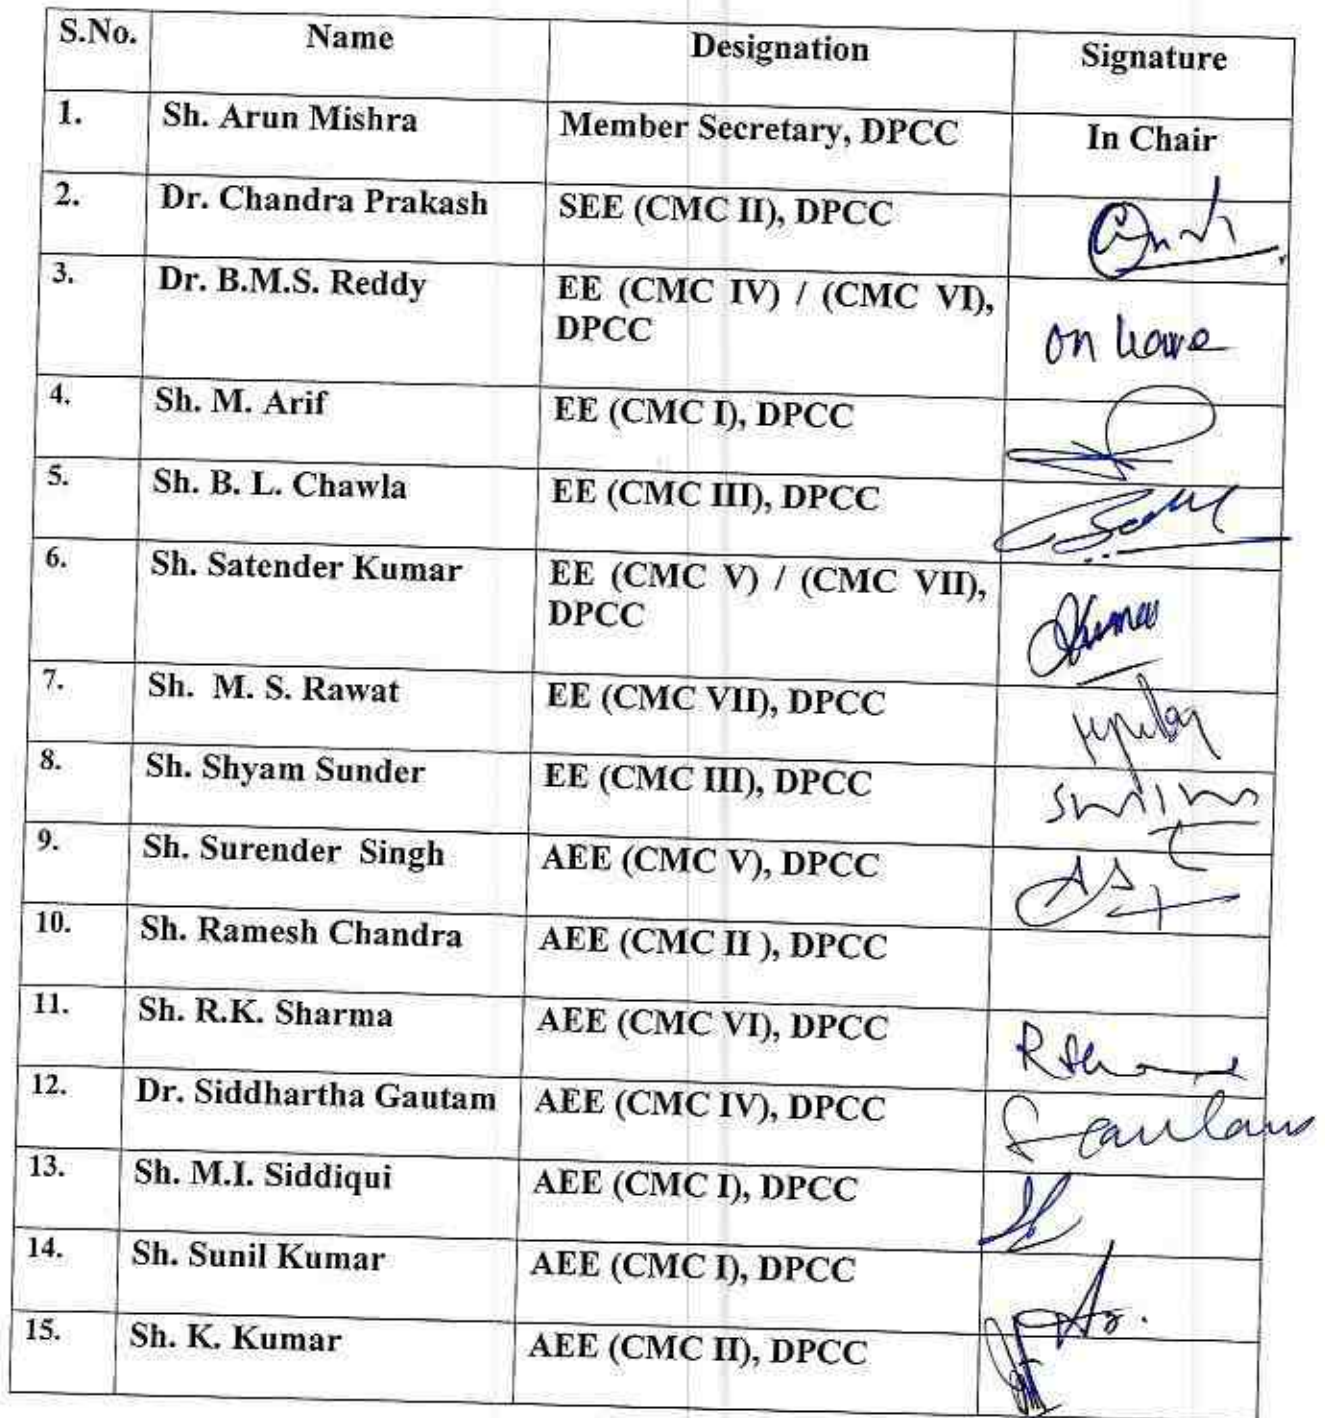 S.No. Name Designation Signature
1. Sh. Arun Mishra Member Secretary, DPCC In Chair
2. Dr. Chandra Prakash SEE (CMC II), DPCC
3. Dr. B.M.S. Reddy EE (CMC IV) / (CMC VI),
DPCC on leave
4. Sh. M. Arif EE (CMC I), DPCC
5. Sh. B. L. Chawla EE (CMC III), DPCC
6. Sh. Satender Kumar EE (CMC V) / (CMC VII),
DPCC
7. Sh. M. S. Rawat EE (CMC VII), DPCC
8. Sh. Shyam Sunder EE (CMC III), DPCC
9. Sh. Surender Singh AEE (CMC V), DPCC
10. Sh. Ramesh Chandra AEE (CMC II ), DPCC
11. Sh. R.K. Sharma AEE (CMC VI), DPCC
12. Dr. Siddhartha Gautam AEE (CMC IV), DPCC
13. Sh. M.I. Siddiqui AEE (CMC I), DPCC
14. Sh. Sunil Kumar AEE (CMC I), DPCC
15. Sh. K. Kumar AEE (CMC II), DPCC